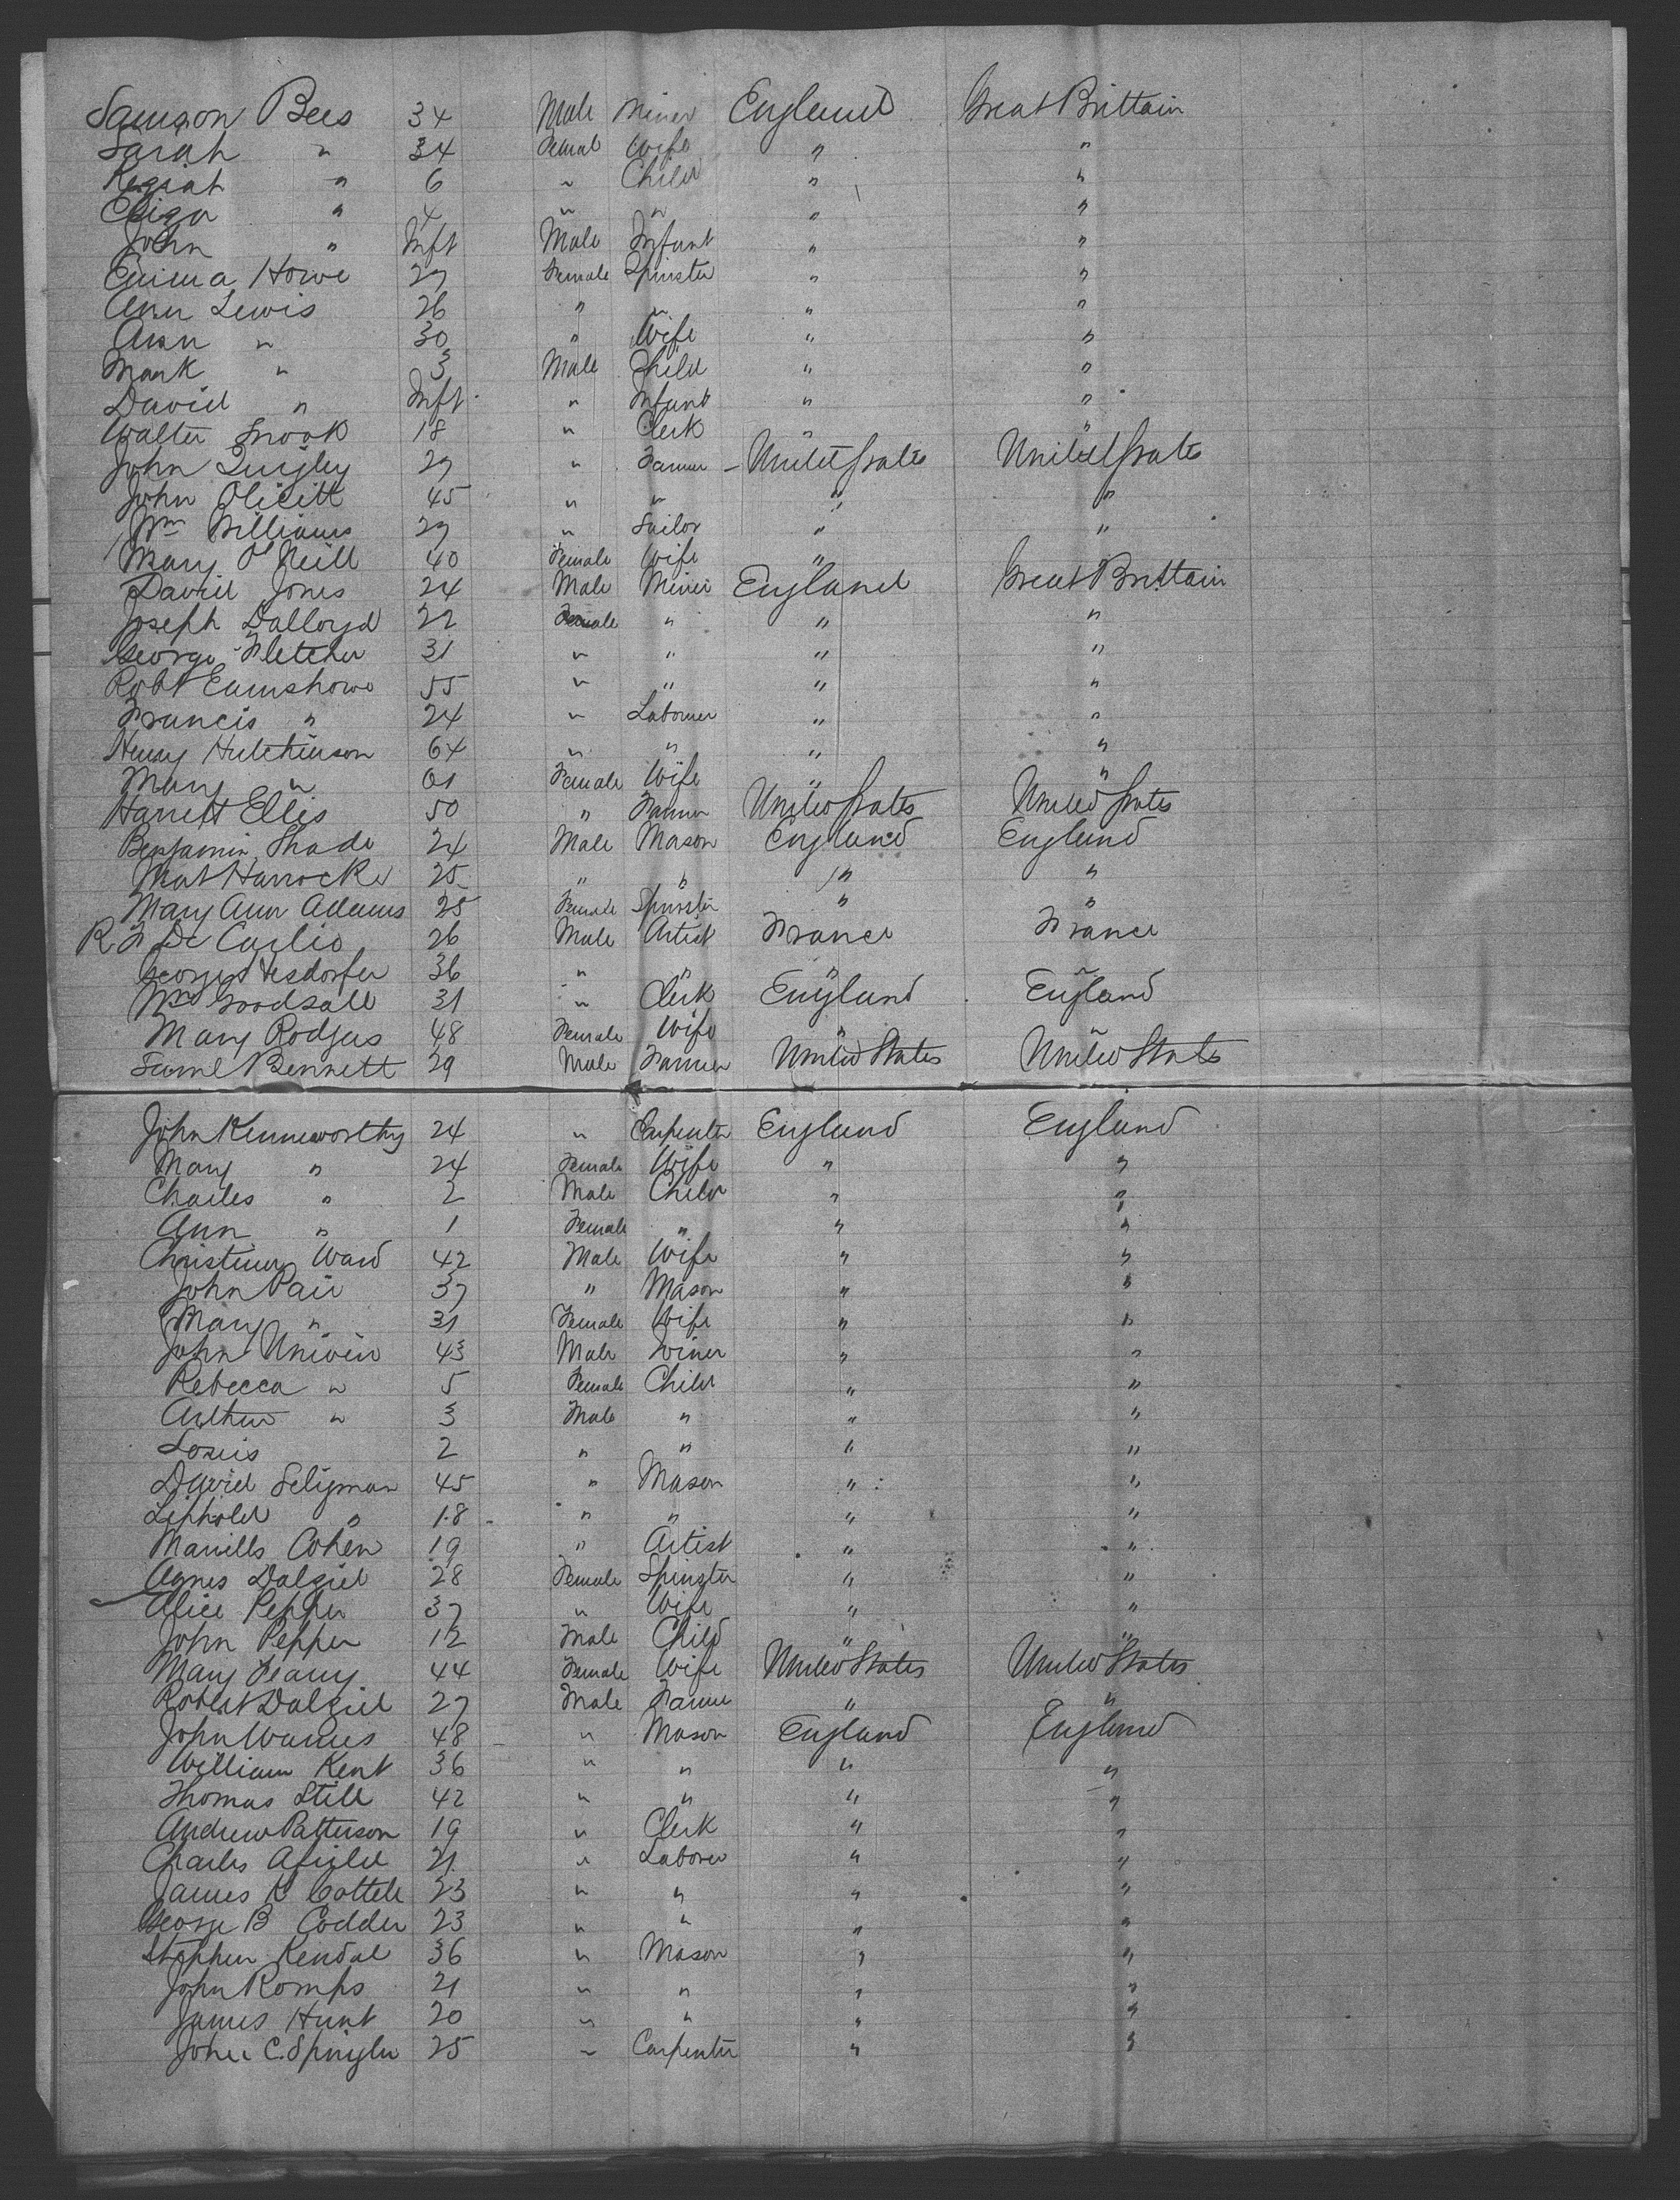 Samson Bees 34 Male Miner England Great Brittain
Sarah " 34 Femal Wife " "
Keziah " 6 " Child " "
Eliza " 4 " " " "
John " Inft Male Infant " "
Emma Howe 27 Female Spinster " "
Ann Lewis 26 " " " "
Ann " 30 " Wife " "
Mark " 3 Male Child " "
David " Inft " Infant " "
Walter Snook 18 " Clerk " "
John Quigley 29 " Farmer United States United States
John 45 " " " "
Wm Williams 29 " Sailor " "
Mary O'Neill 40 Female Wife " "
David Jones 24 Male Miner England Great Brittain
Joseph Dalloyd 22 Female " " "
George Fletcher 31 " " " "
Robt Earnshowe 55 " " " "
Francis " 24 " Laborer " "
Henry Hutchinson 64 " " " "
Mary " 61 Female Wife " "
Harrett Ellis 50 " Farmer United States United States
Benjamin Shade 24 Male Mason England England
Mat Harrocks 25 " " " "
Mary Ann Adams 25 Female Spinster " "
R F De Carlio 26 Male Artist France France
George Hesdorfer 36 " " " "
Wm Goodsall 31 " Clerk England England
Mary Rodgers 48 Female Wife " "
Saml Bennett 29 Male Farmer United States United States
John Kenneworthy 24 " Carpenter England England
Mary " 24 Female Wife " "
Charles " 2 Male Child " "
Ann " 1 Female " " "
Christina Ward 42 Male Wife " "
John Pair 37 " Mason " "
Mary " 31 Female Wife " "
John Unwin 43 Male " "
Rebecca " 5 Female Child " "
Arthur " 3 Male " " "
Louis 2 " " " "
David Seligman 45 " Mason " "
" 18 " " " "
Cohen 19 " Artist " "
Agnes Dalziel 28 Female Spinster " "
Alice Pepper 37 " Wife " "
John Pepper 12 Male Child " "
Mary Leary 44 Female Wife United States United States
Robert Dalziel 27 Male Farmer " "
John Warnes 48 " Mason England England
William Kent 36 " " " "
Thomas Still 42 " " " "
Andrew Patterson 19 " Clerk " "
Charles Afield 21 " Laborer " "
James K Cottell 23 " " " "
George B Codder 23 " " " "
Stephen Kendal 36 " Mason " "
John Romps 21 " " " "
James Hunt 20 " " " "
John C. Spingler 25 " Carpenter " "